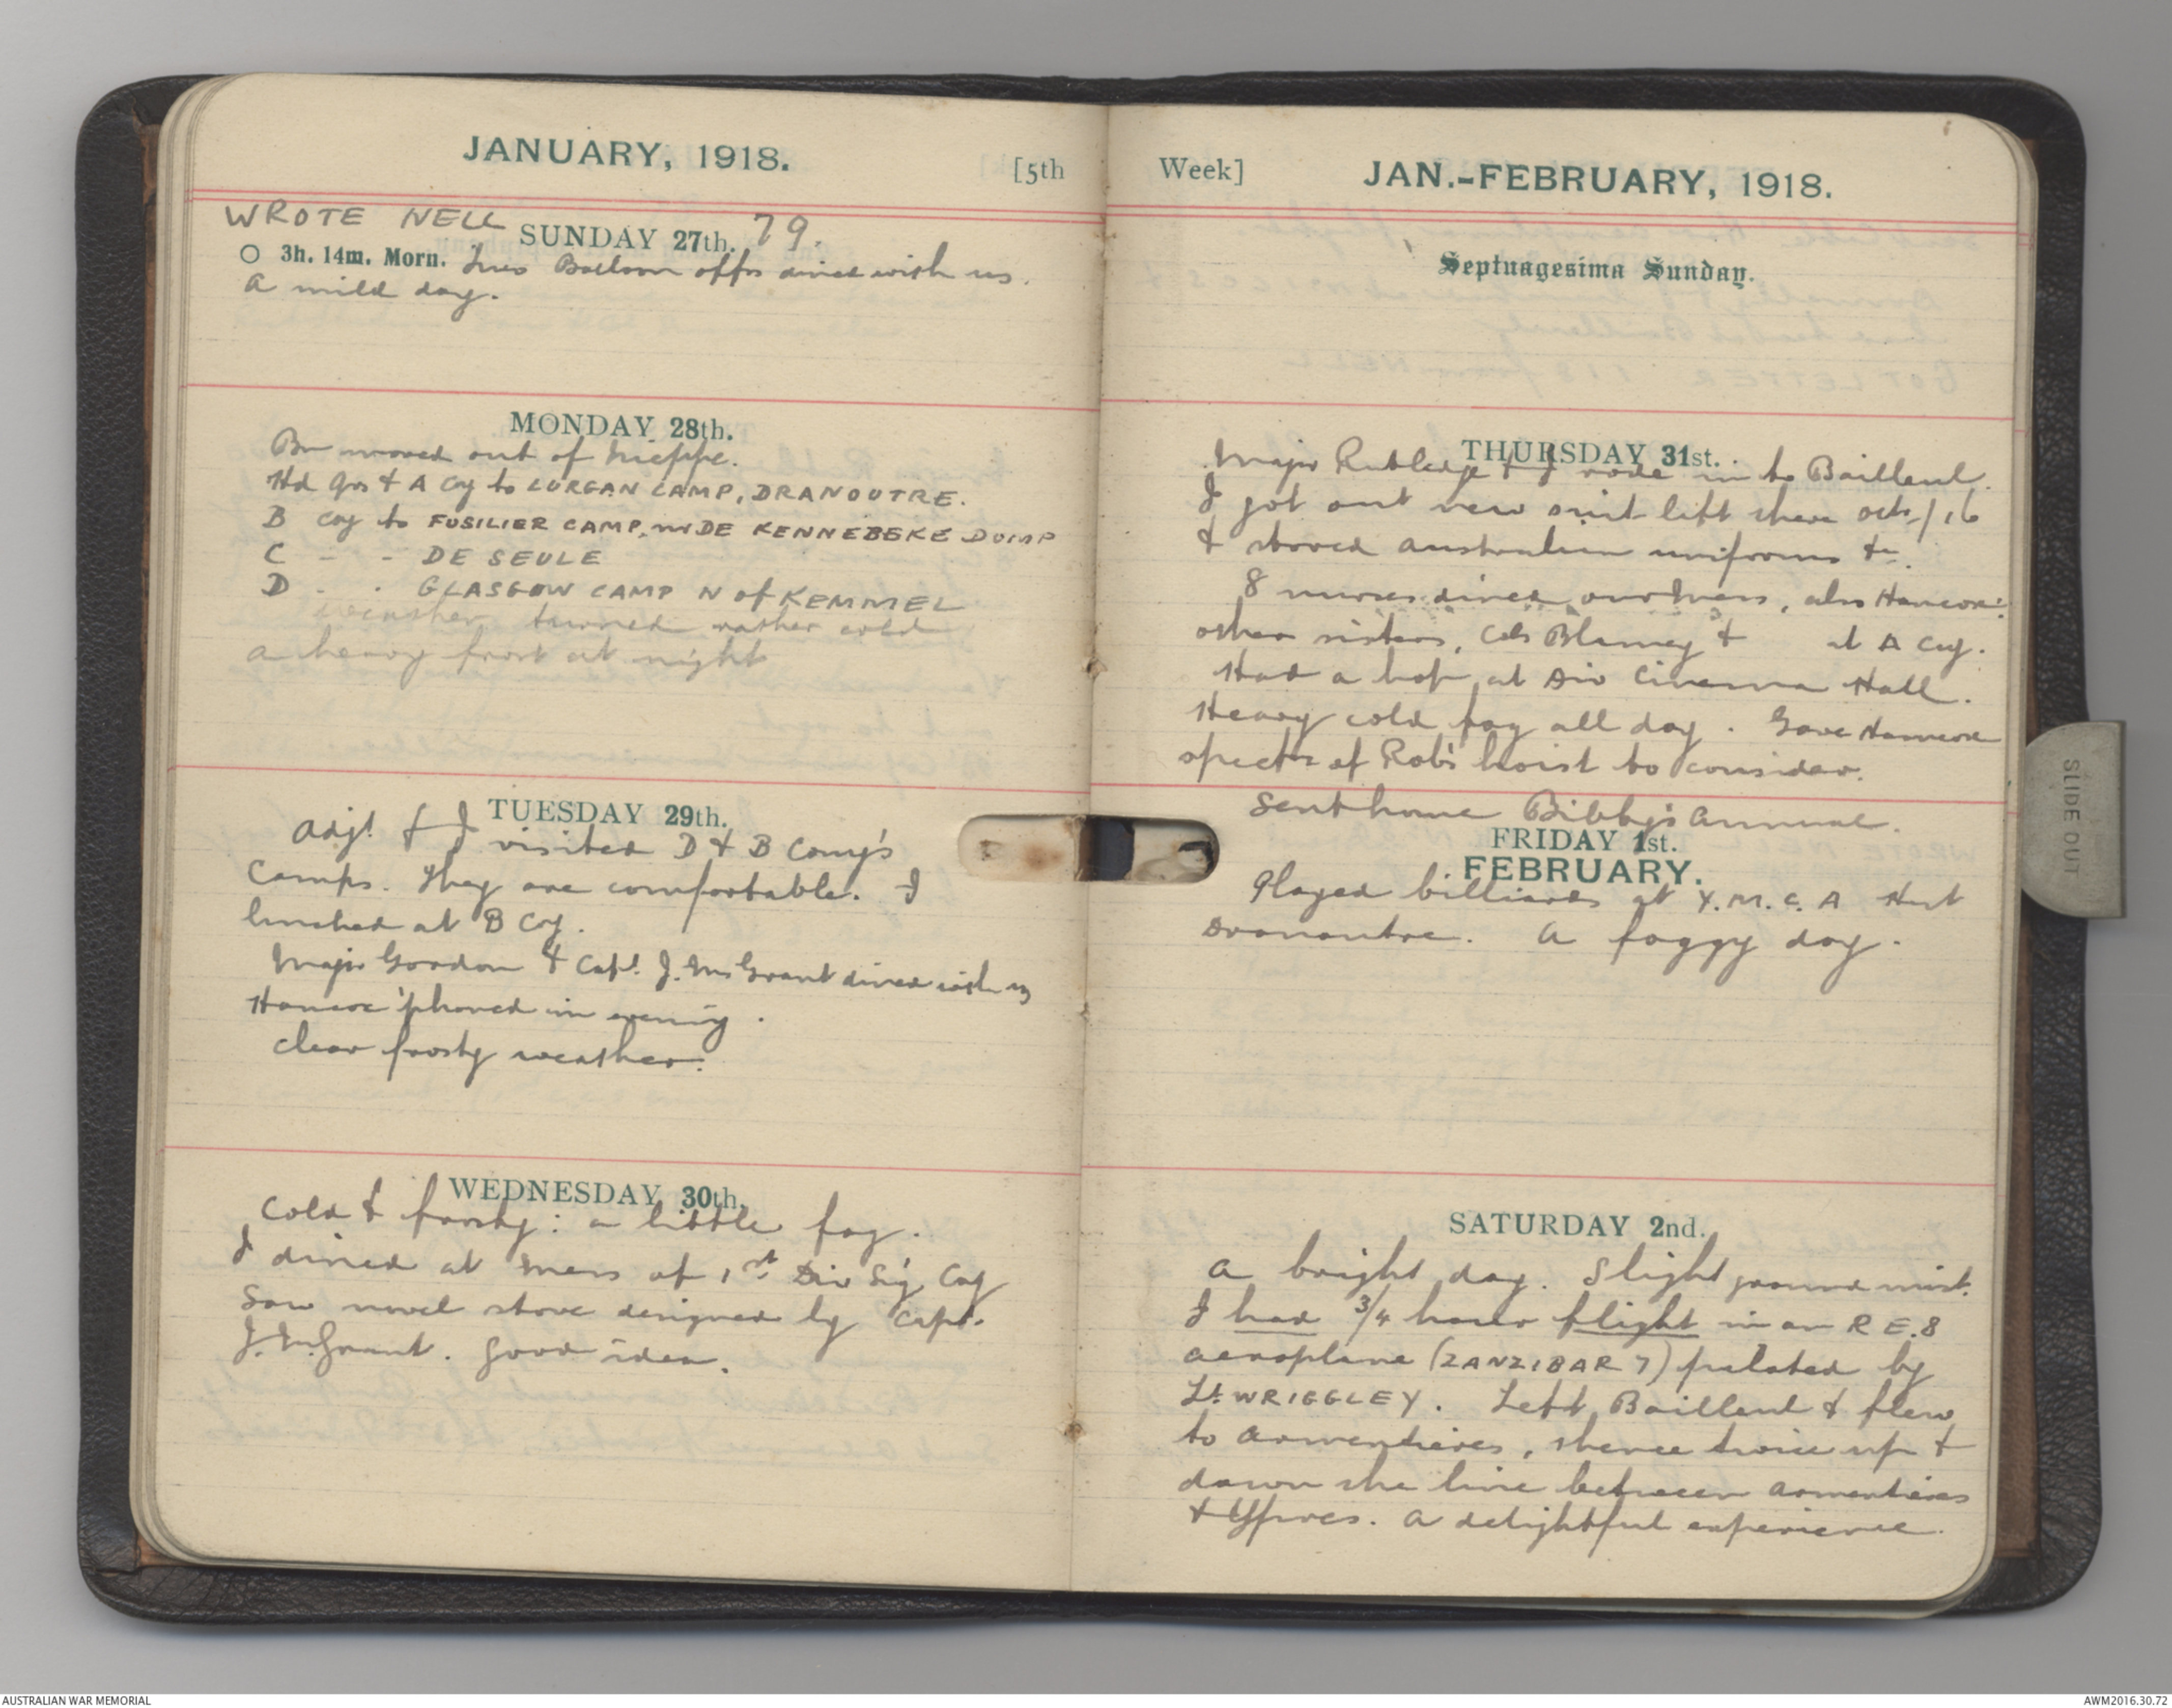 JANUARY, 1918.
[5th
WROTE NELL SUNDAY 27th. 79.
3h. 14m. Morn. Two Balloon offrs dined with us.
A mild day.
MONDAY 28th.
Bn moved out of Nieppe.
Hd Qrs & A Coy to LURGAN CAMP, DRANOUTRE.
B Coy to FUSILIER CAMP, nr DE KENNEBEKE DUMP
C - - DE SEULE
D - - GLASGOW CAMP N of KEMMEL
Weather turned rather cold
a heavy frost at night
TUESDAY 29th.
Adjt & I visited D & B Comy's
Camps. They are comfortable. I
lunched at B Coy.
Major Gordon & Capt. J. McGrant dined with us
'phoned in evening.
Clear frosty weather.
WEDNESDAY 30th.
Cold & frosty: a little fog.
I dined at mess of 1st Div Sig Coy
Saw novel stove designed by Capt.
J. McGrant. Good idea.
Week]
JAN.-FEBRUARY, 1918.
Septuagesima Sunday.
THURSDAY 31st.
Major Rutledge & I rode in to Bailleul.
I got out new suit left there Oct/16
& stored Australian uniforms &c.
8 nurses dined our mess, also
other sisters, Cols Blamey & at A Coy.
Had a hop at Div Cinema Hall.
Heavy cold fog all day. Gave
specs of Rob's hoist to consider.
Sent home Bibby's Annual.
FRIDAY 1st.
FEBRUARY.
Played billiards at Y.M.C.A Hut
Dranoutre. A foggy day.
SATURDAY 2nd.
A bright day. Slight ground mist.
I had 3/4 hour flight in an R E.8
aeroplane (ZANZIBAR 7) piloted by
Lt. WRIGGLEY. Left Bailleul & flew
to Armentieres, thence twice up &
down the line between Armentieres
& Ypres. A delightful experience.
SLIDE OUT
AUSTRALIAN WAR MEMORIAL
AWM2016.30.72